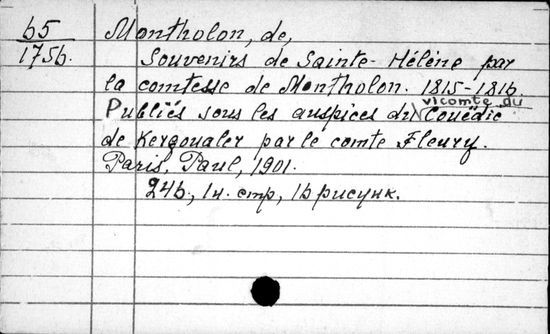 65 Montholon, de,
1756. Souvenirs de Sainte-Hélène par
la comtesse de Montholon. 1815-1816.
Publiés sous les auspices du vicomte du Couëdic
de Kergoualer par le comte Fleury.
Paris, Paul, 1901.
246, 1 н. стр, 16 рисунк.